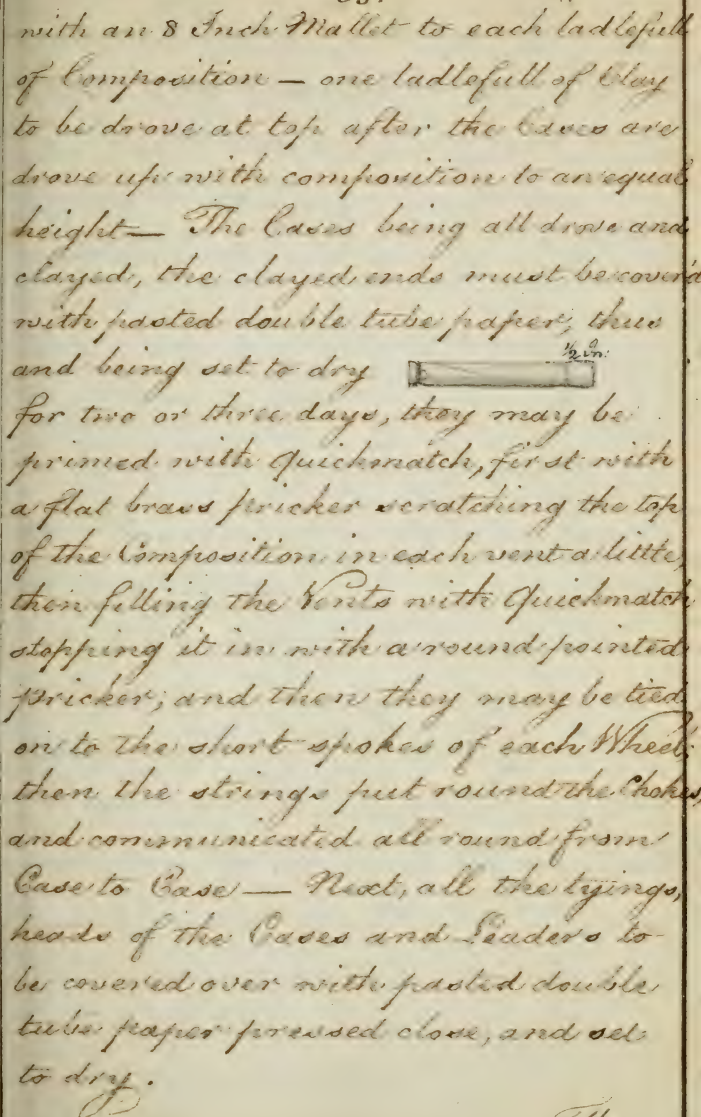 with an 8 Inch Mallet to each ladlefull
of Composition — one ladlefull of Clay
to be drove at top after the Cases are
drove up with composition to an equal
height — The Cases being all drove and
clayed, the clayed ends must be cover'd
with pasted double tube paper, thus
½ in:
and being set to dry
for two or three days, they may be
primed with Quickmatch, first with
a flat brass pricker scratching the top
of the Composition in each vent a little,
then filling the Vents with Quickmatch
stopping it in with a round pointed
pricker; and then they may be tied
on to the short spokes of each Wheel;
then the strings put round the Chokes,
and communicated all round from
Case to Case — Next, all the tyings,
heads of the Cases and Leaders to
be covered over with pasted double
tube paper pressed close, and set
to dry.